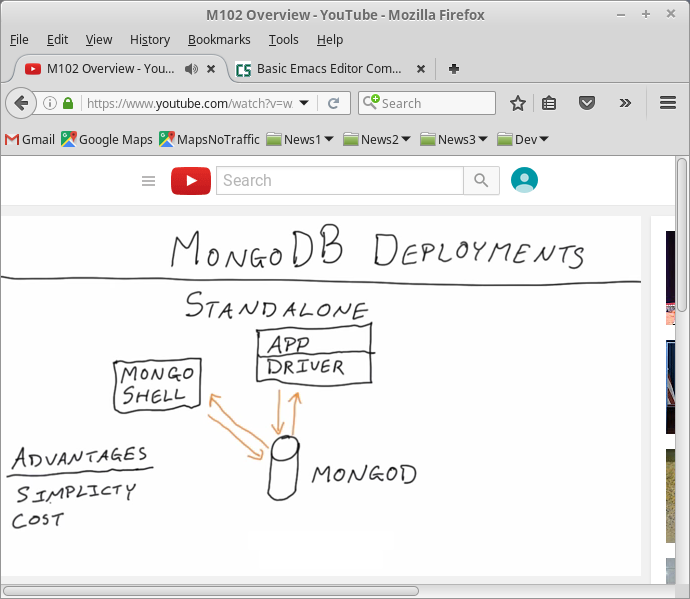 M102 Overview - YouTube - Mozilla Firefox
File Edit View History Bookmarks Tools Help
M102 Overview - You...
Basic Emacs Editor Com...
https://www.youtube.com/watch?v=w
Search
Gmail Google Maps MapsNoTraffic News1 News2 News3 Dev
Search
MONGODB DEPLOYMENTS
STANDALONE
APP
DRIVER
MONGO
SHELL
ADVANTAGES
SIMPLICTY
COST
MONGOD